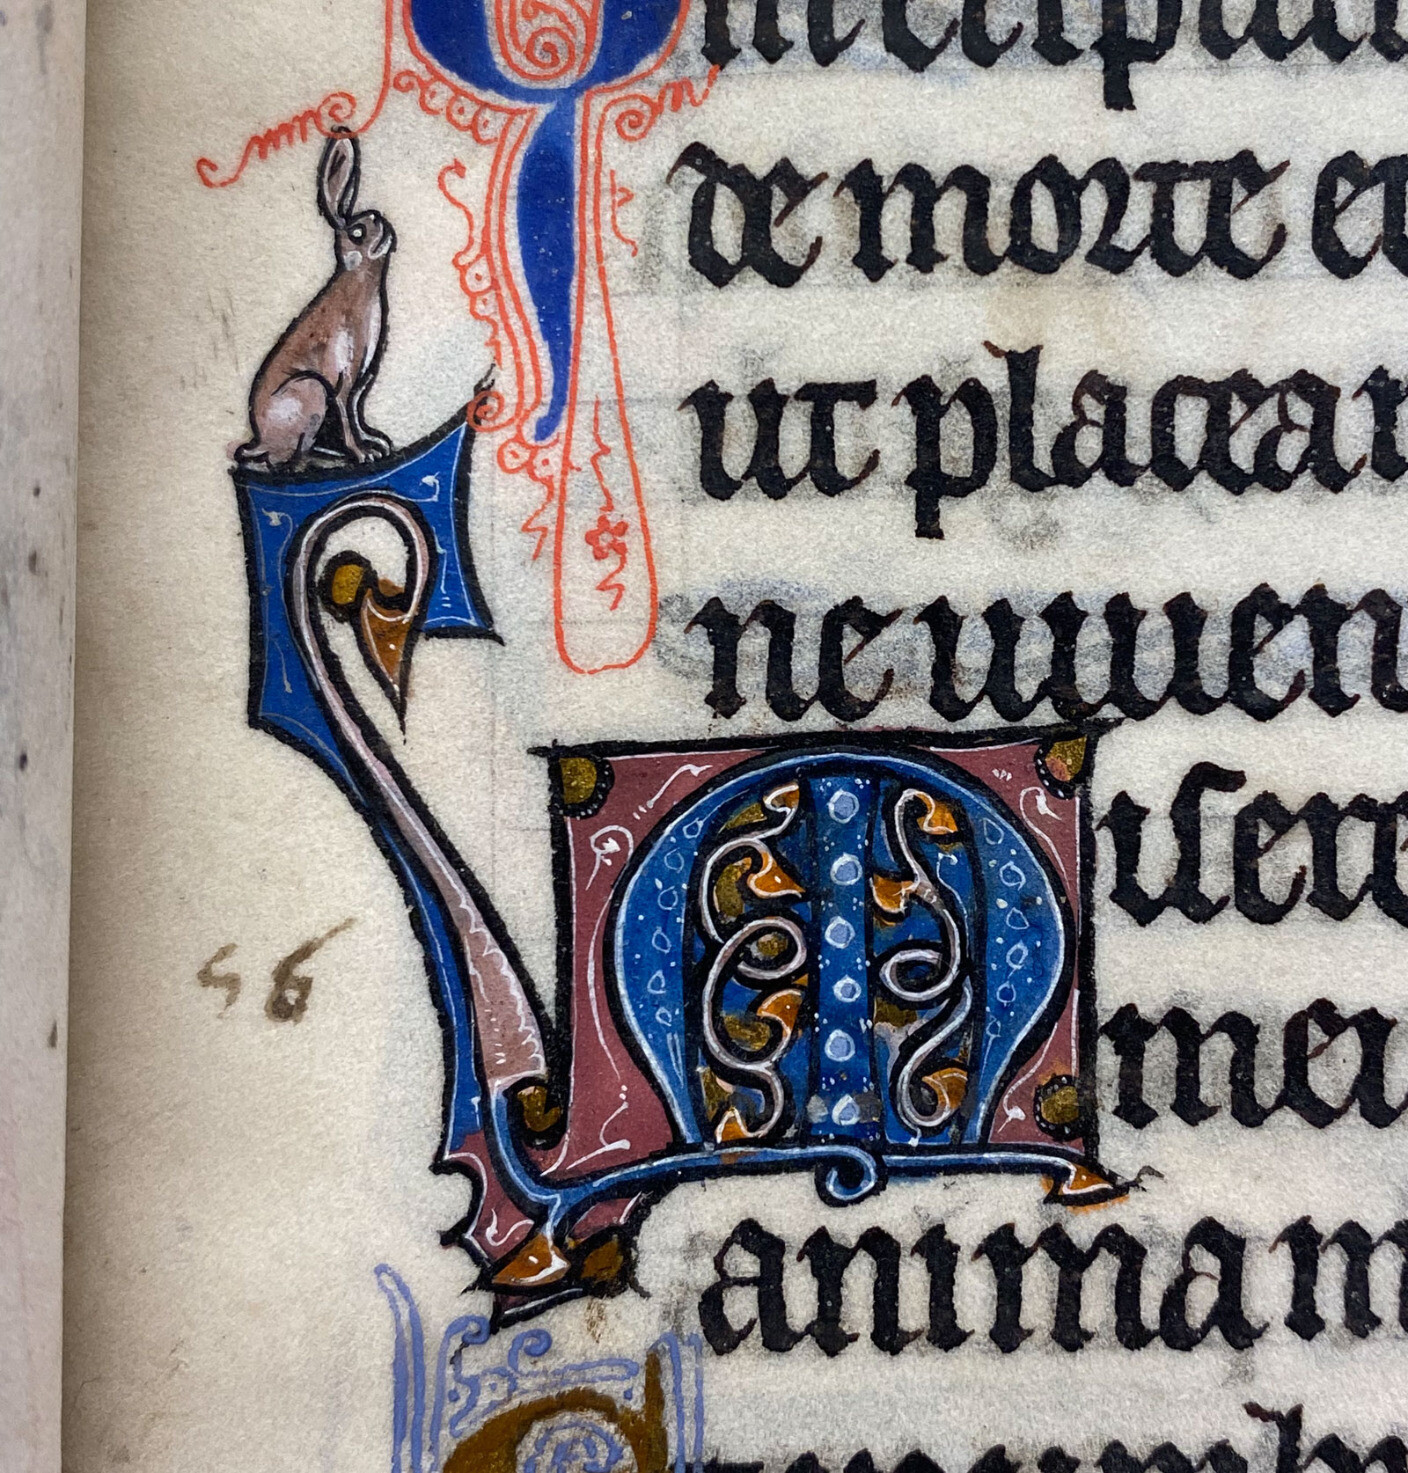 de morte et
ut placea
ne uiuen
Miſere
56
mei
anima m